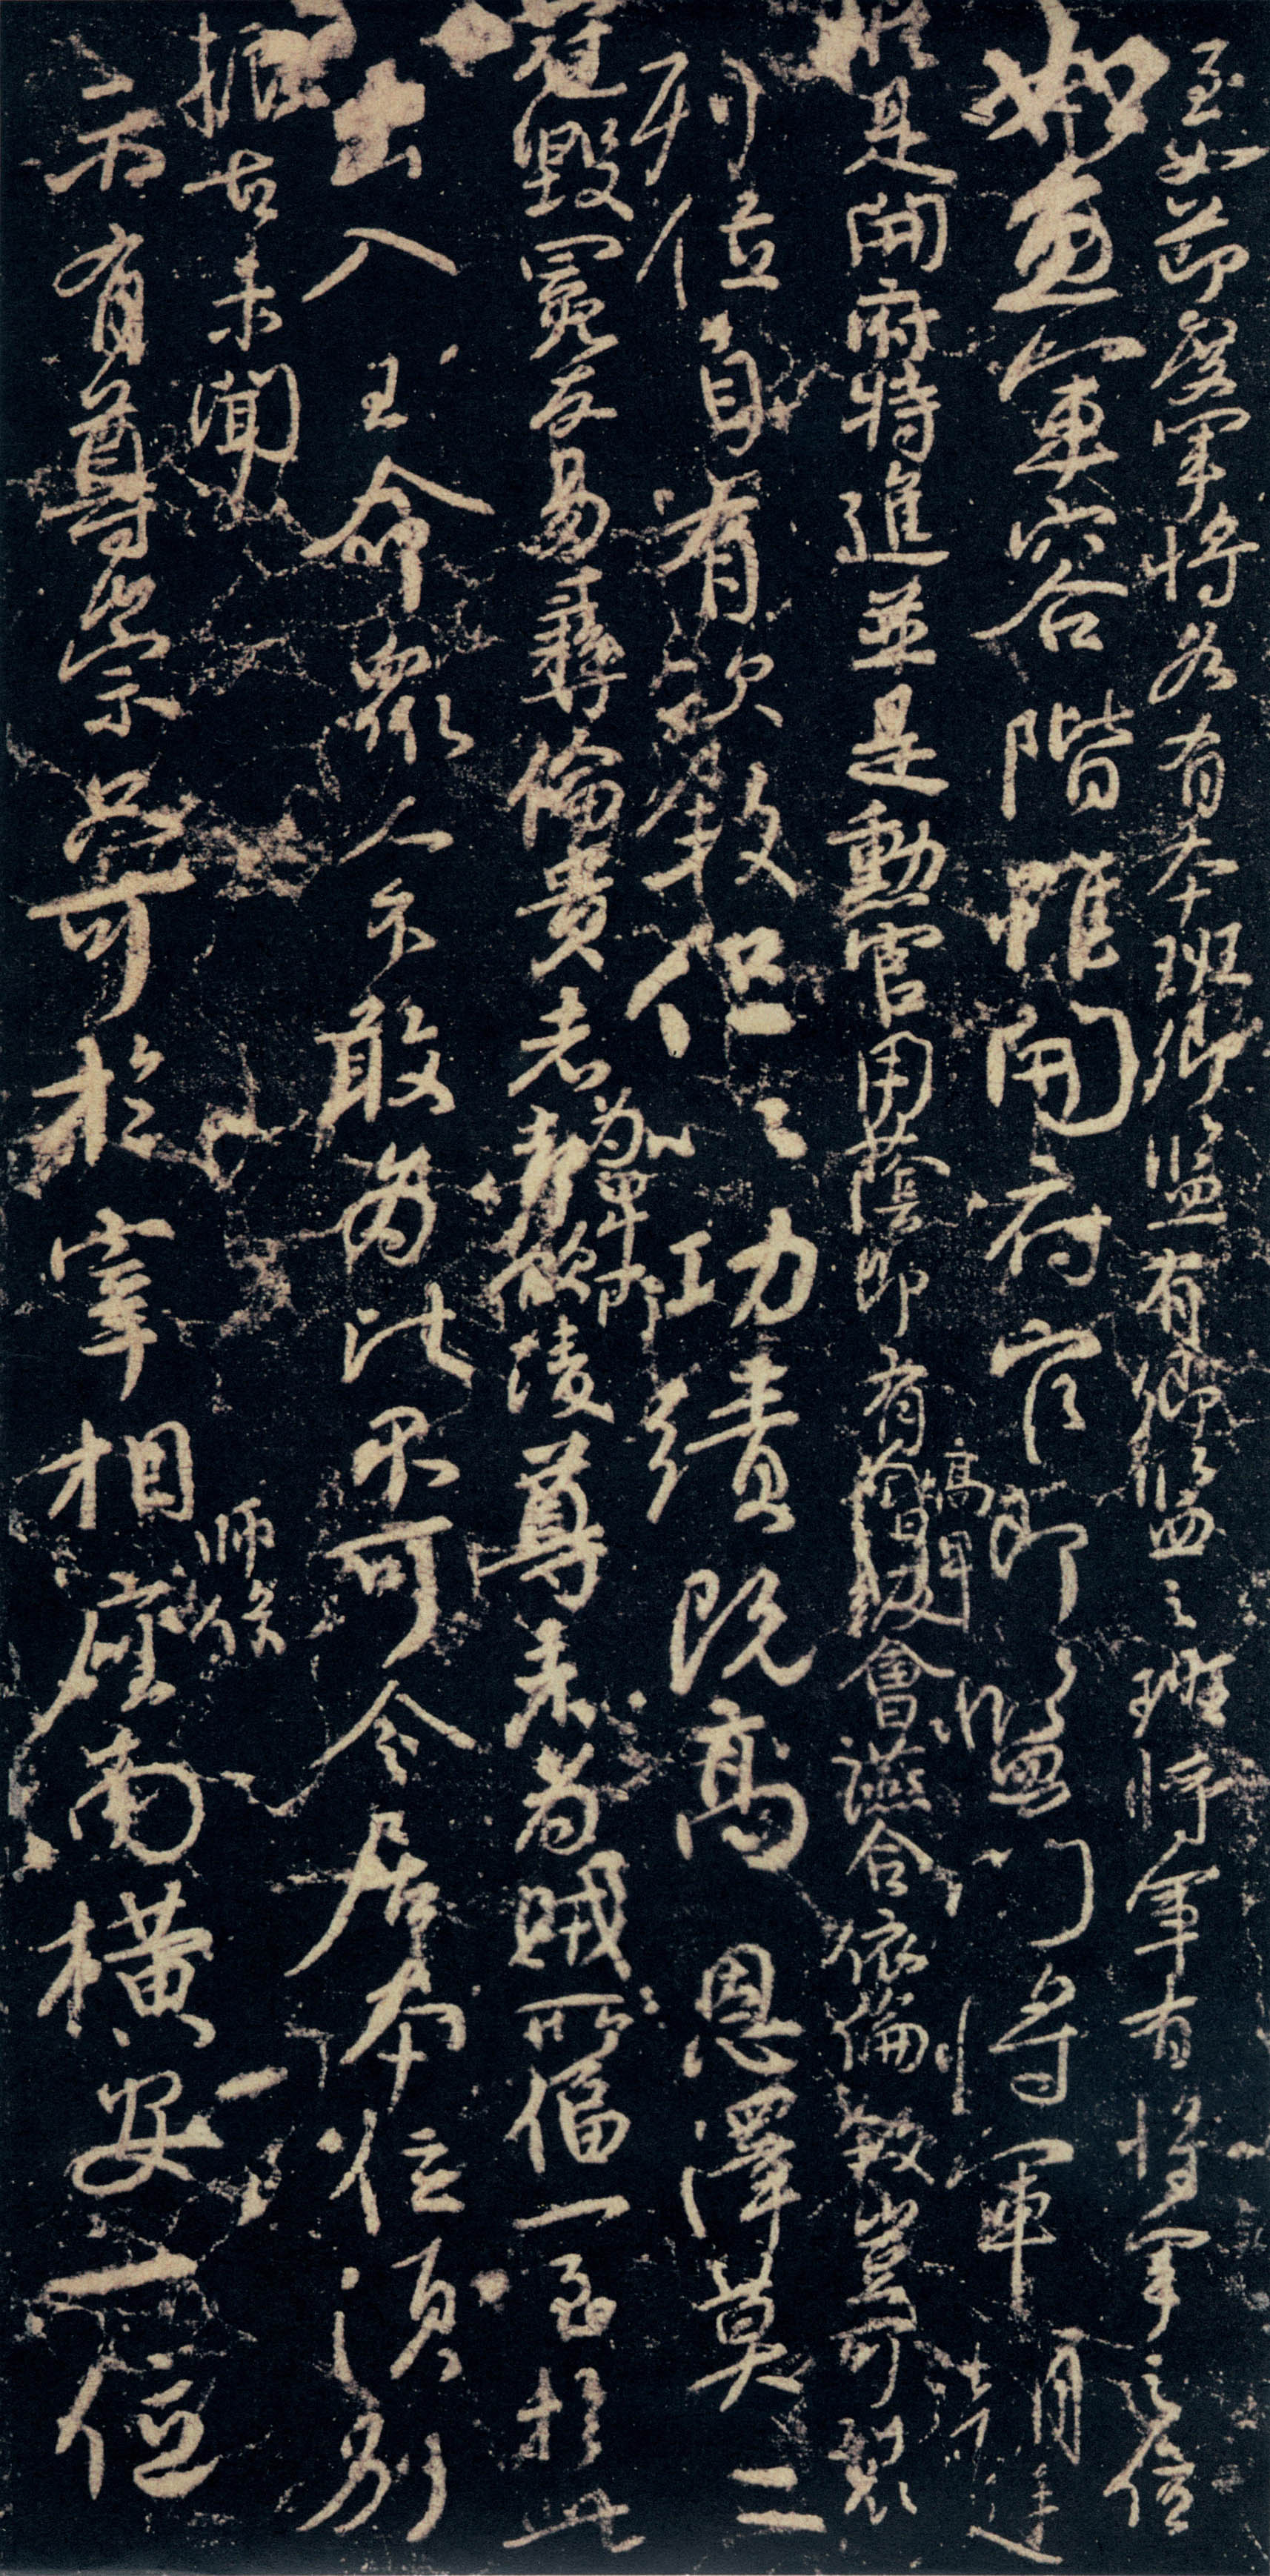 至如節度軍將各有本班卿監有卿監之班將軍有將軍之位
如魚軍容階雖開府官即監門將軍朝廷
縱是開府特進並是勳官用蔭即有高卑會讌合依倫敘豈可裂
列位自有次敘但以功績既高恩澤莫二
冠毀冕反易彝倫貴者為卑所凌尊者為賊所偪一至於此
出入王命眾人不敢為此不可令居本位須別
振古未聞
示有尊崇只可於宰相師保座南橫安一位